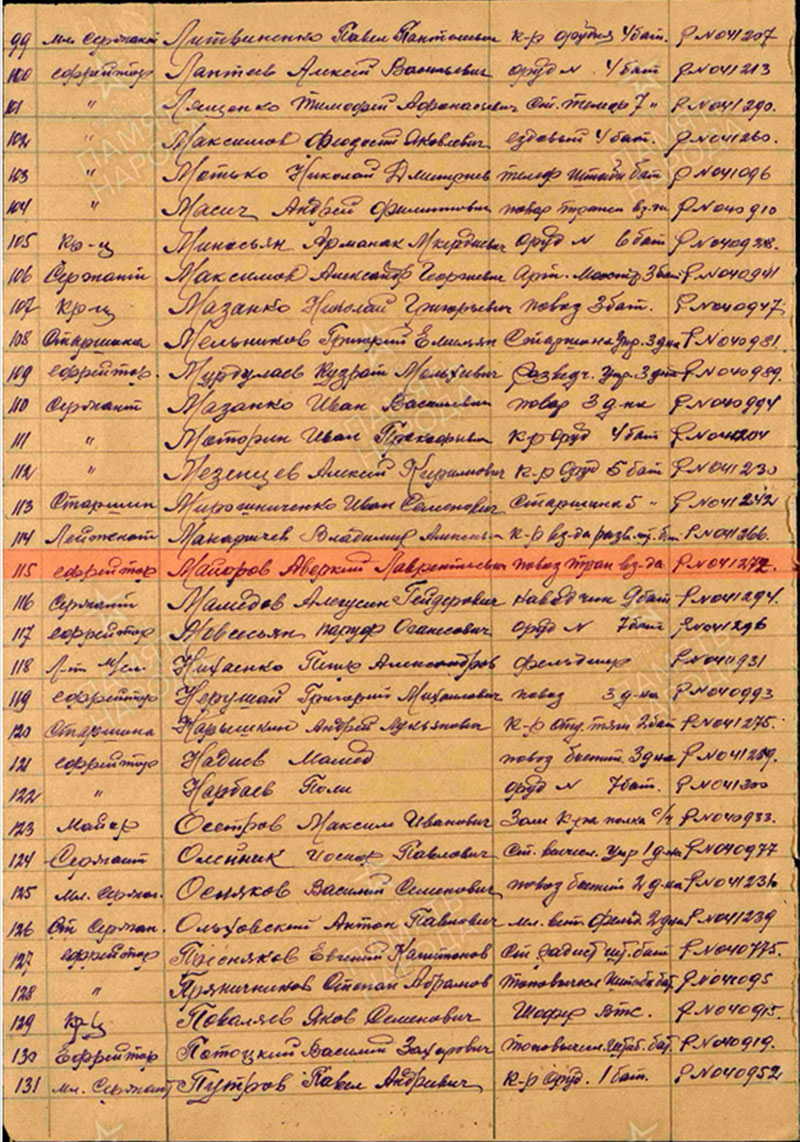 99 мл сержант Литвиненко Павел Пантелеев к-р орудия 4 бат. Р N 041207
100 ефрейтор Лаптев Алексей Васильевич оруд N 4 бат Р N 041213
101 " Лященко Тимофей Афанасьевич Ст. телеф 7 " Р N 041290.
102 " Максимов Феодосий Яковлевич ездовый 4 бат. Р N 041260.
103 " Мотько Николай Дмитриев телеф штаба бат Р N 041096
104 " Масич Андрей Филиппович повар трансп вз-да Р N 040910
105 кр-ц Минасьян Арманак Мкердичевич оруд N 6 бат Р N 040938.
106 Сержант Максимов Александр Георгиевич Арт. Мастр 3 бат Р N 040941
107 кр-ц Мазанко Николай Григорьевич повоз 3 бат. Р N 040947
108 Старшина Мельников Григорий Емельян Старшина упр. 3 д-на Р N 040981.
109 ефрейтор. Кузрат разведч. упр. 3 д-на Р N 040989.
110 Сержант Мазанко Иван Васильевич повар 3 д-на Р N 040994
111 " Моторин Иван Прокофьев к-р оруд 4 бат Р N 041204
112 " Мезенцев Алексей к-р оруд 5 бат Р N 041230
113 Старшин Мирошниченко Иван Семенович Старшина 5 " Р N 041242
114 Лейтенант Владимир Алексеев к-р вз-да развед. Р N 041266.
115 ефрейтор Майоров Аверкий Лаврентьевич повоз тран вз-да Р N 041272.
116 Сержант Мамедов Алегусин Гейдерович наводчик 9 бат Р N 041294.
117 ефрейтор Мовсесьян Паруф Оганесович оруд N 7 бат Р N 041296
118 Л-т м/сл. Нихаенко Петр Александров фельдшер Р N 041931
119 ефрейтор Нерушай Григорий Михайлович повоз 3 д-на Р N 040993
120 Старшина Нарышкин Андрей Лукьянович к-р отд. тяги 2 бат Р N 041275.
121 ефрейтор Надиев Мамед повоз боепит. 3 д-на Р N 041289.
122 " Нарбаев Поли оруд N 7 бат. Р N 041300
123 Майор Осетров Максим Иванович Зам к-ра полка с/ч Р N 040933.
124 Сержант Олейник Иосиф Павлович Ст. вычисл. упр 1 д-на Р N 040977
125 мл. сержан. Осняков Василий Семенович повоз боепит 2 д-на Р N 041236
126 Ст Сержан. Ольховский Антон Павлович мл. вет. фельд 2 д-на Р N 041239
127 ефрейтор Евгений Капитонов Ст радист шт. бат Р N 040775.
128 " Пряничников Степан Абрамов топовычисл штаба бат. Р N 041095
129 кр-ц Поваляев Яков Семенович Шофер Р N 040915.
130 Ефрейтор Потоцкий Василий Захарович топовычисл. штаб. бат. Р N 040919.
131 мл. Сержант Путров Павел Андреевич к-р оруд. 1 бат. Р N 040952